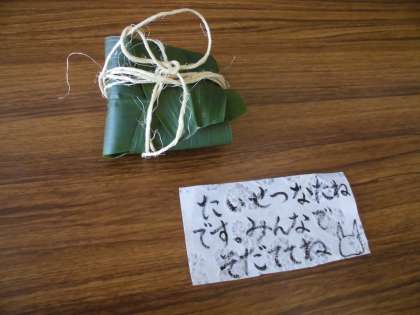 たいせつなたね
です。みんなで
そだててね